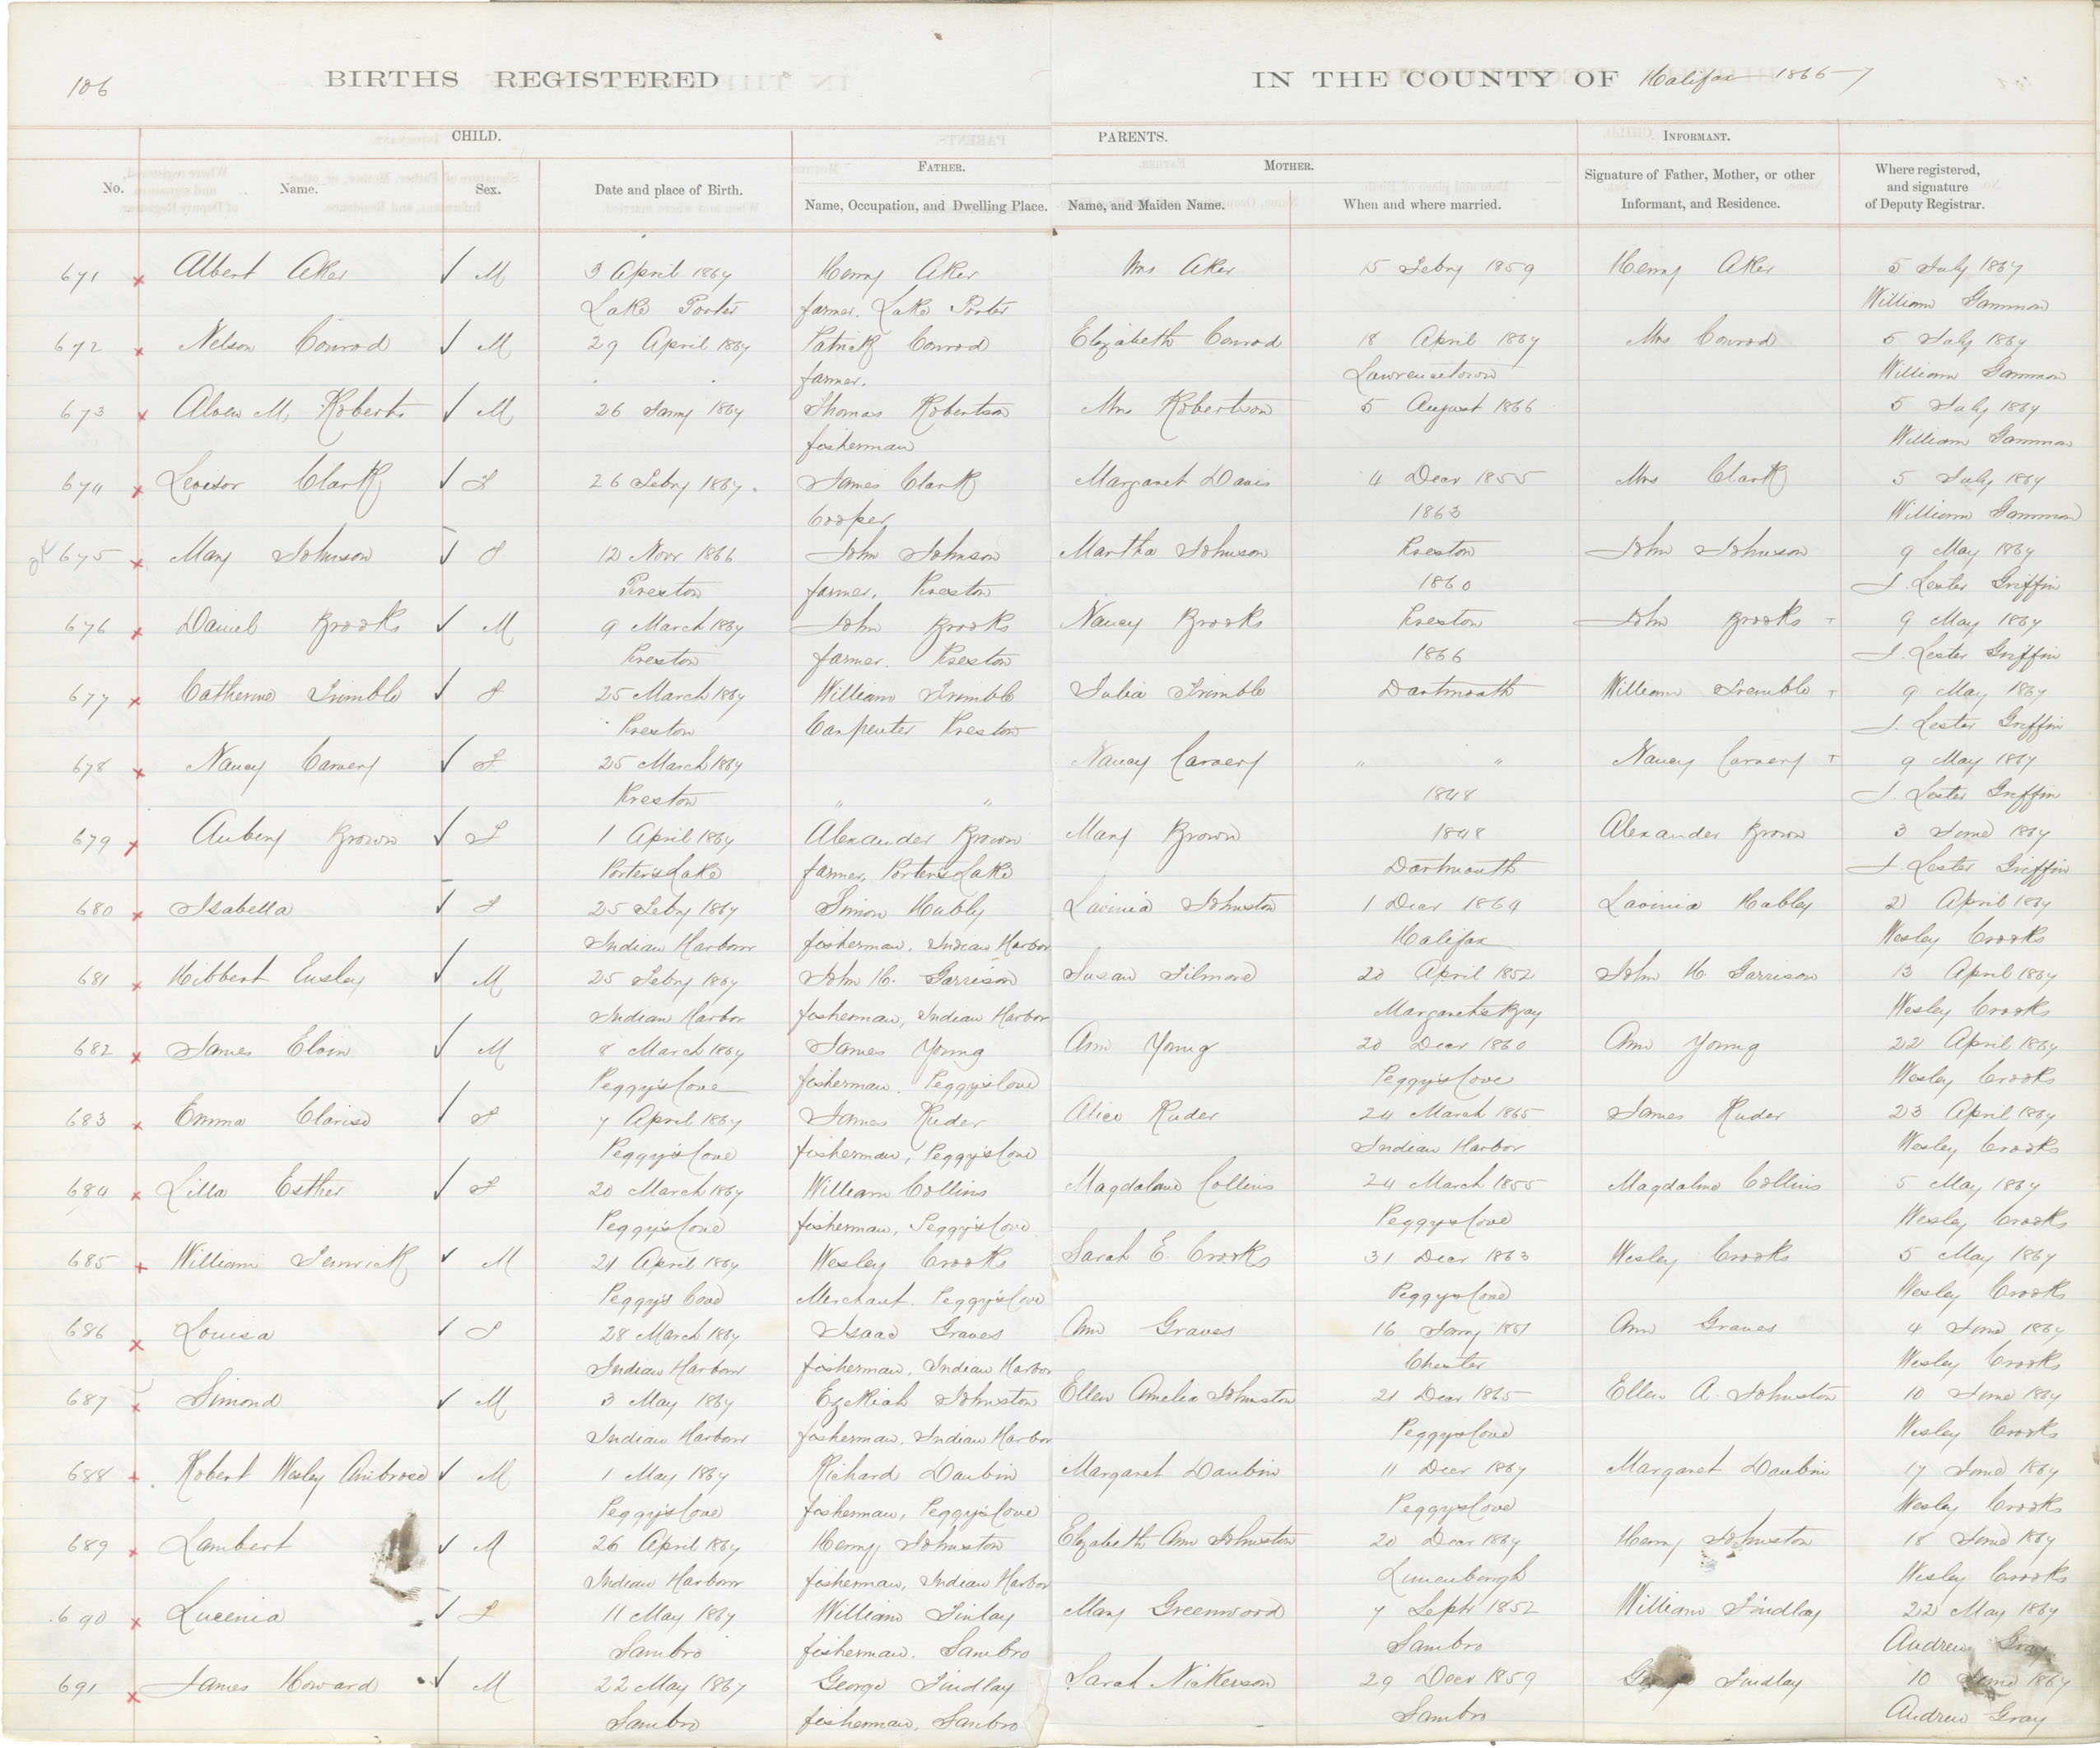 106
BIRTHS REGISTERED IN THE COUNTY OF Halifax 1866-7
CHILD. PARENTS. INFORMANT.
FATHER. MOTHER.
No. Name. Sex. Date and place of Birth. Name, Occupation, and Dwelling Place. Name, and Maiden Name. When and where married. Signature of Father, Mother, or other Informant, and Residence. Where registered, and signature of Deputy Registrar.
671 Albert Aker M 3 April 1867 Henry Aker Mrs Aker 15 Febry 1859 Henry Aker 5 July 1867
Lake Porter farmer. Lake Porter William Gammon
672 Nelson Conrod M 29 April 1867 Patrick Conrod Elizabeth Conrod 18 April 1867 Mrs Conrod 5 July 1867
farmer. Lawrencetown William Gammon
673 Alven M. Roberts M 26 Jany 1867 Thomas Robertson Mrs Robertson 5 August 1866 5 July 1867
fisherman William Gammon
674 Clark F 26 Febry 1867. James Clark Margaret Davis 4 Decr 1855 Mrs Clark 5 July 1867
Cooper 1863 William Gammon
675 Mary Johnson F 12 Novr 1866 John Johnson Martha Johnson Preston John Johnson 9 May 1867
Preston farmer. Preston 1860 J. Lester Griffin
676 Daniel Brooks M 9 March 1867 John Brooks Nancy Brooks Preston John Brooks 9 May 1867
Preston farmer. Preston 1866 J. Lester Griffin
677 Catherine Trimble F 25 March 1867 William Trimble Julia Trimble Dartmouth William Tremble 9 May 1867
Preston Carpenter Preston J. Lester Griffin
678 Nancy Carvery F 25 March 1867 Nancy Carvery " " Nancy Carvery 9 May 1867
Preston " " 1848 J. Lester Griffin
679 Aubery Brown F 1 April 1867 Alexander Brown Mary Brown 1848 Alexander Brown 3 June 1867
Porter's Lake farmer, Porter's Lake Dartmouth J. Lester Griffin
680 Isabella F 25 Febry 1867 Simon Hubly Lavinia Johnston 1 Decr 1864 Lavinia Hubley 2 April 1867
Indian Harbour fisherman, Indian Harbor Halifax Wesley Crooks
681 Hibbert Ensley M 25 Febry 1867 John H. Garrison Susan Filmore 20 April 1852 John H. Garrison 13 April 1867
Indian Harbor fisherman, Indian Harbor Margarets Bay Wesley Crooks
682 James Elvin M 8 March 1867 James Young Ann Young 20 Decr 1860 Ann Young 22 April 1867
Peggy's Cove fisherman. Peggy's Cove Peggy's Cove Wesley Crooks
683 Emma Clarise F 7 April 1867 James Ruder Alice Ruder 24 March 1865 James Ruder 23 April 1867
Peggy's Cove fisherman, Peggy's Cove Indian Harbor Wesley Crooks
684 Lilla Esther F 20 March 1867 William Collins Magdalane Collins 24 March 1855 Magdalane Collins 5 May 1867
Peggy's Cove fisherman, Peggy's Cove Peggy's Cove Wesley Crooks
685 William Fenwick M 21 April 1867 Wesley Crooks Sarah E. Crooks 31 Decr 1863 Wesley Crooks 5 May 1867
Peggy's Cove Merchant. Peggy's Cove Peggy's Cove Wesley Crooks
686 Louisa F 28 March 1867 Isaac Graves Ann Graves 16 Jany 1861 Ann Graves 4 June 1867
Indian Harbour fisherman, Indian Harbor Chester Wesley Crooks
687 Simond M 3 May 1867 Ezekiah Johnston Ellen Amelia Johnston 21 Decr 1865 Ellen A. Johnston 10 June 1867
Indian Harbour fisherman, Indian Harbor Peggy's Cove Wesley Crooks
688 Robert Wesley Ambrose M 1 May 1867 Richard Daubin Margaret Daubin 11 Decr 1867 Margaret Daubin 17 June 1867
Peggy's Cove fisherman, Peggy's Cove Peggy's Cove Wesley Crooks
689 Lambert M 26 April 1867 Henry Johnston Elizabeth Ann Johnston 20 Decr 1867 Henry Johnston 18 June 1867
Indian Harbour fisherman, Indian Harbor Lunenbergh Wesley Crooks
690 Lucenia F 11 May 1867 William Finlay Mary Greenwood 7 Septr 1852 William Findlay 22 May 1867
Sambro fisherman. Sambro Sambro Andrew Gray
691 James Howard M 22 May 1867 George Findlay Sarah Nickerson 29 Decr 1859 George Findlay 10 June 1867
Sambro fisherman, Sambro Sambro Andrew Gray